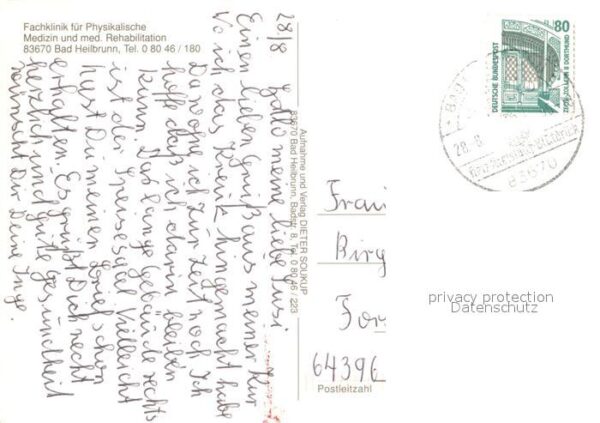 Fachklinik für Physikalische
Medizin und med. Rehabilitation
83670 Bad Heilbrunn, Tel. 0 80 46 / 180
28/8
Hallo meine liebe Susi
Einen lieben Gruß aus meiner Kur
Wo ich das Kreuz hingemacht habe
Da wohne ich zur Zeit noch Ich
hoffe daß ich darin bleiben
kann. Das lange Gebäude rechts
ist der Speisesaal Vielleicht
hast Du meinen Brief schon
erhalten. Es grüßt Dich recht
herzlich und gute Gesundheit
wünscht Dir Deine Inge.
Aufnahme und Verlag DIETER SOUKUP
83670 Bad Heilbrunn, Badstr. 8, Tel. 0 80 46 / 223
80
DEUTSCHE BUNDESPOST
DORTMUND
28. 8.
83670
Frau
Birg
For
64396
Postleitzahl
privacy protection
Datenschutz